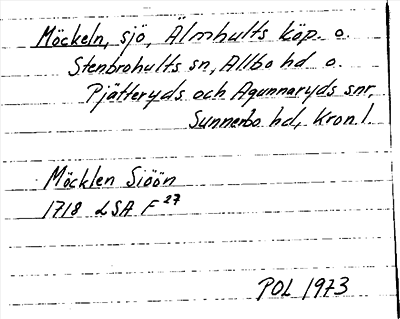 Möckeln, sjö, Älmhults köp. o.
Stenbrohults sn, Allbo hd o.
Pjätteryds och Agunnaryds snr,
Sunnerbo hd, Kron. l.
Möcklen Siöön
1718 LSA F 27
POL 1973